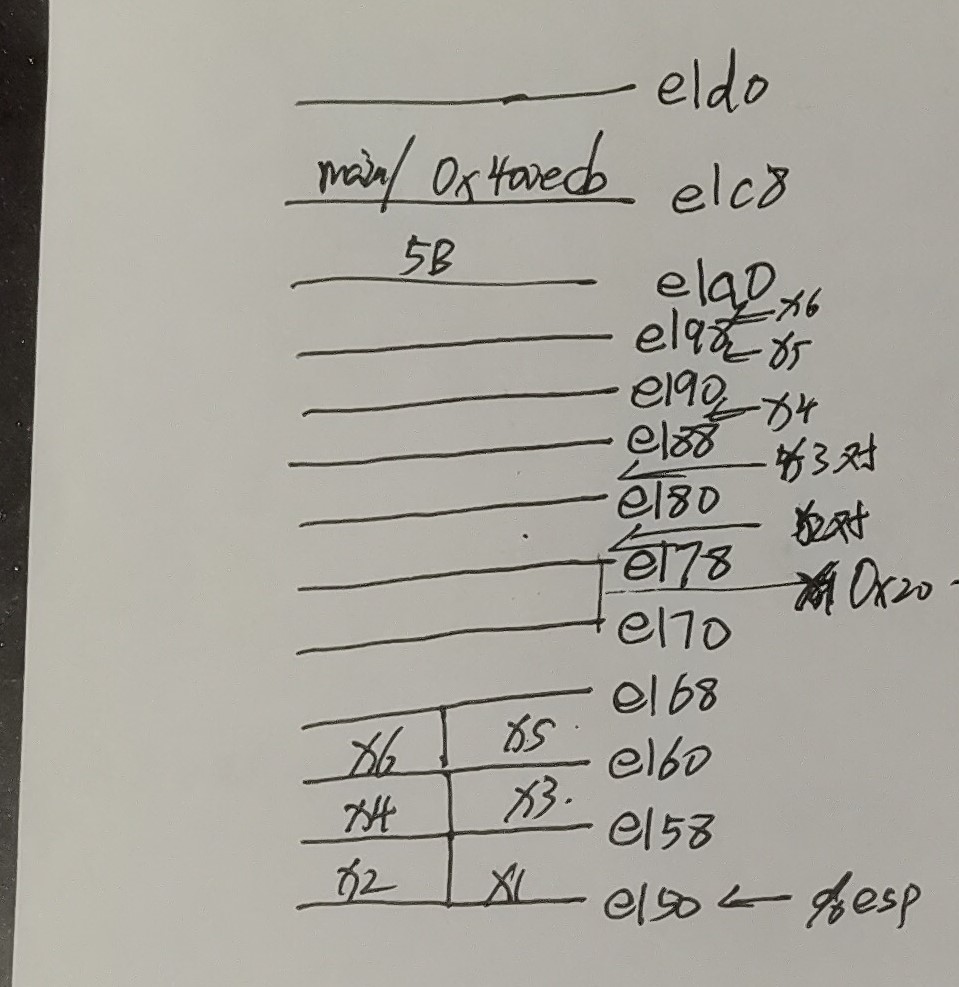 e1d0
main/ 0x400ecb e1c8
5B
e1a0
x6
e198
x5
e190
x4
e188
x3对
e180
x2对
e178
0x20
e170
e168
x6 x5
e160
x4 x3.
e158
x2 x1
e150 ← %esp